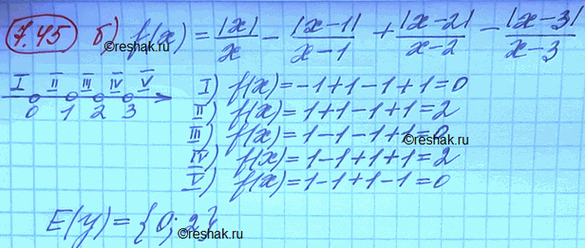 7.45 б) f(x) = |x|/x − |x−1|/(x−1) + |x−2|/(x−2) − |x−3|/(x−3)
©reshak.ru
I II III IV V
0 1 2 3
I) f(x) = −1+1−1+1=0
II) f(x) = 1+1−1+1=2
III) f(x) = 1−1−1+1=0
IV) f(x) = 1−1+1+1=2
V) f(x) = 1−1+1−1=0
E(y) = {0; 2}
©reshak.ru